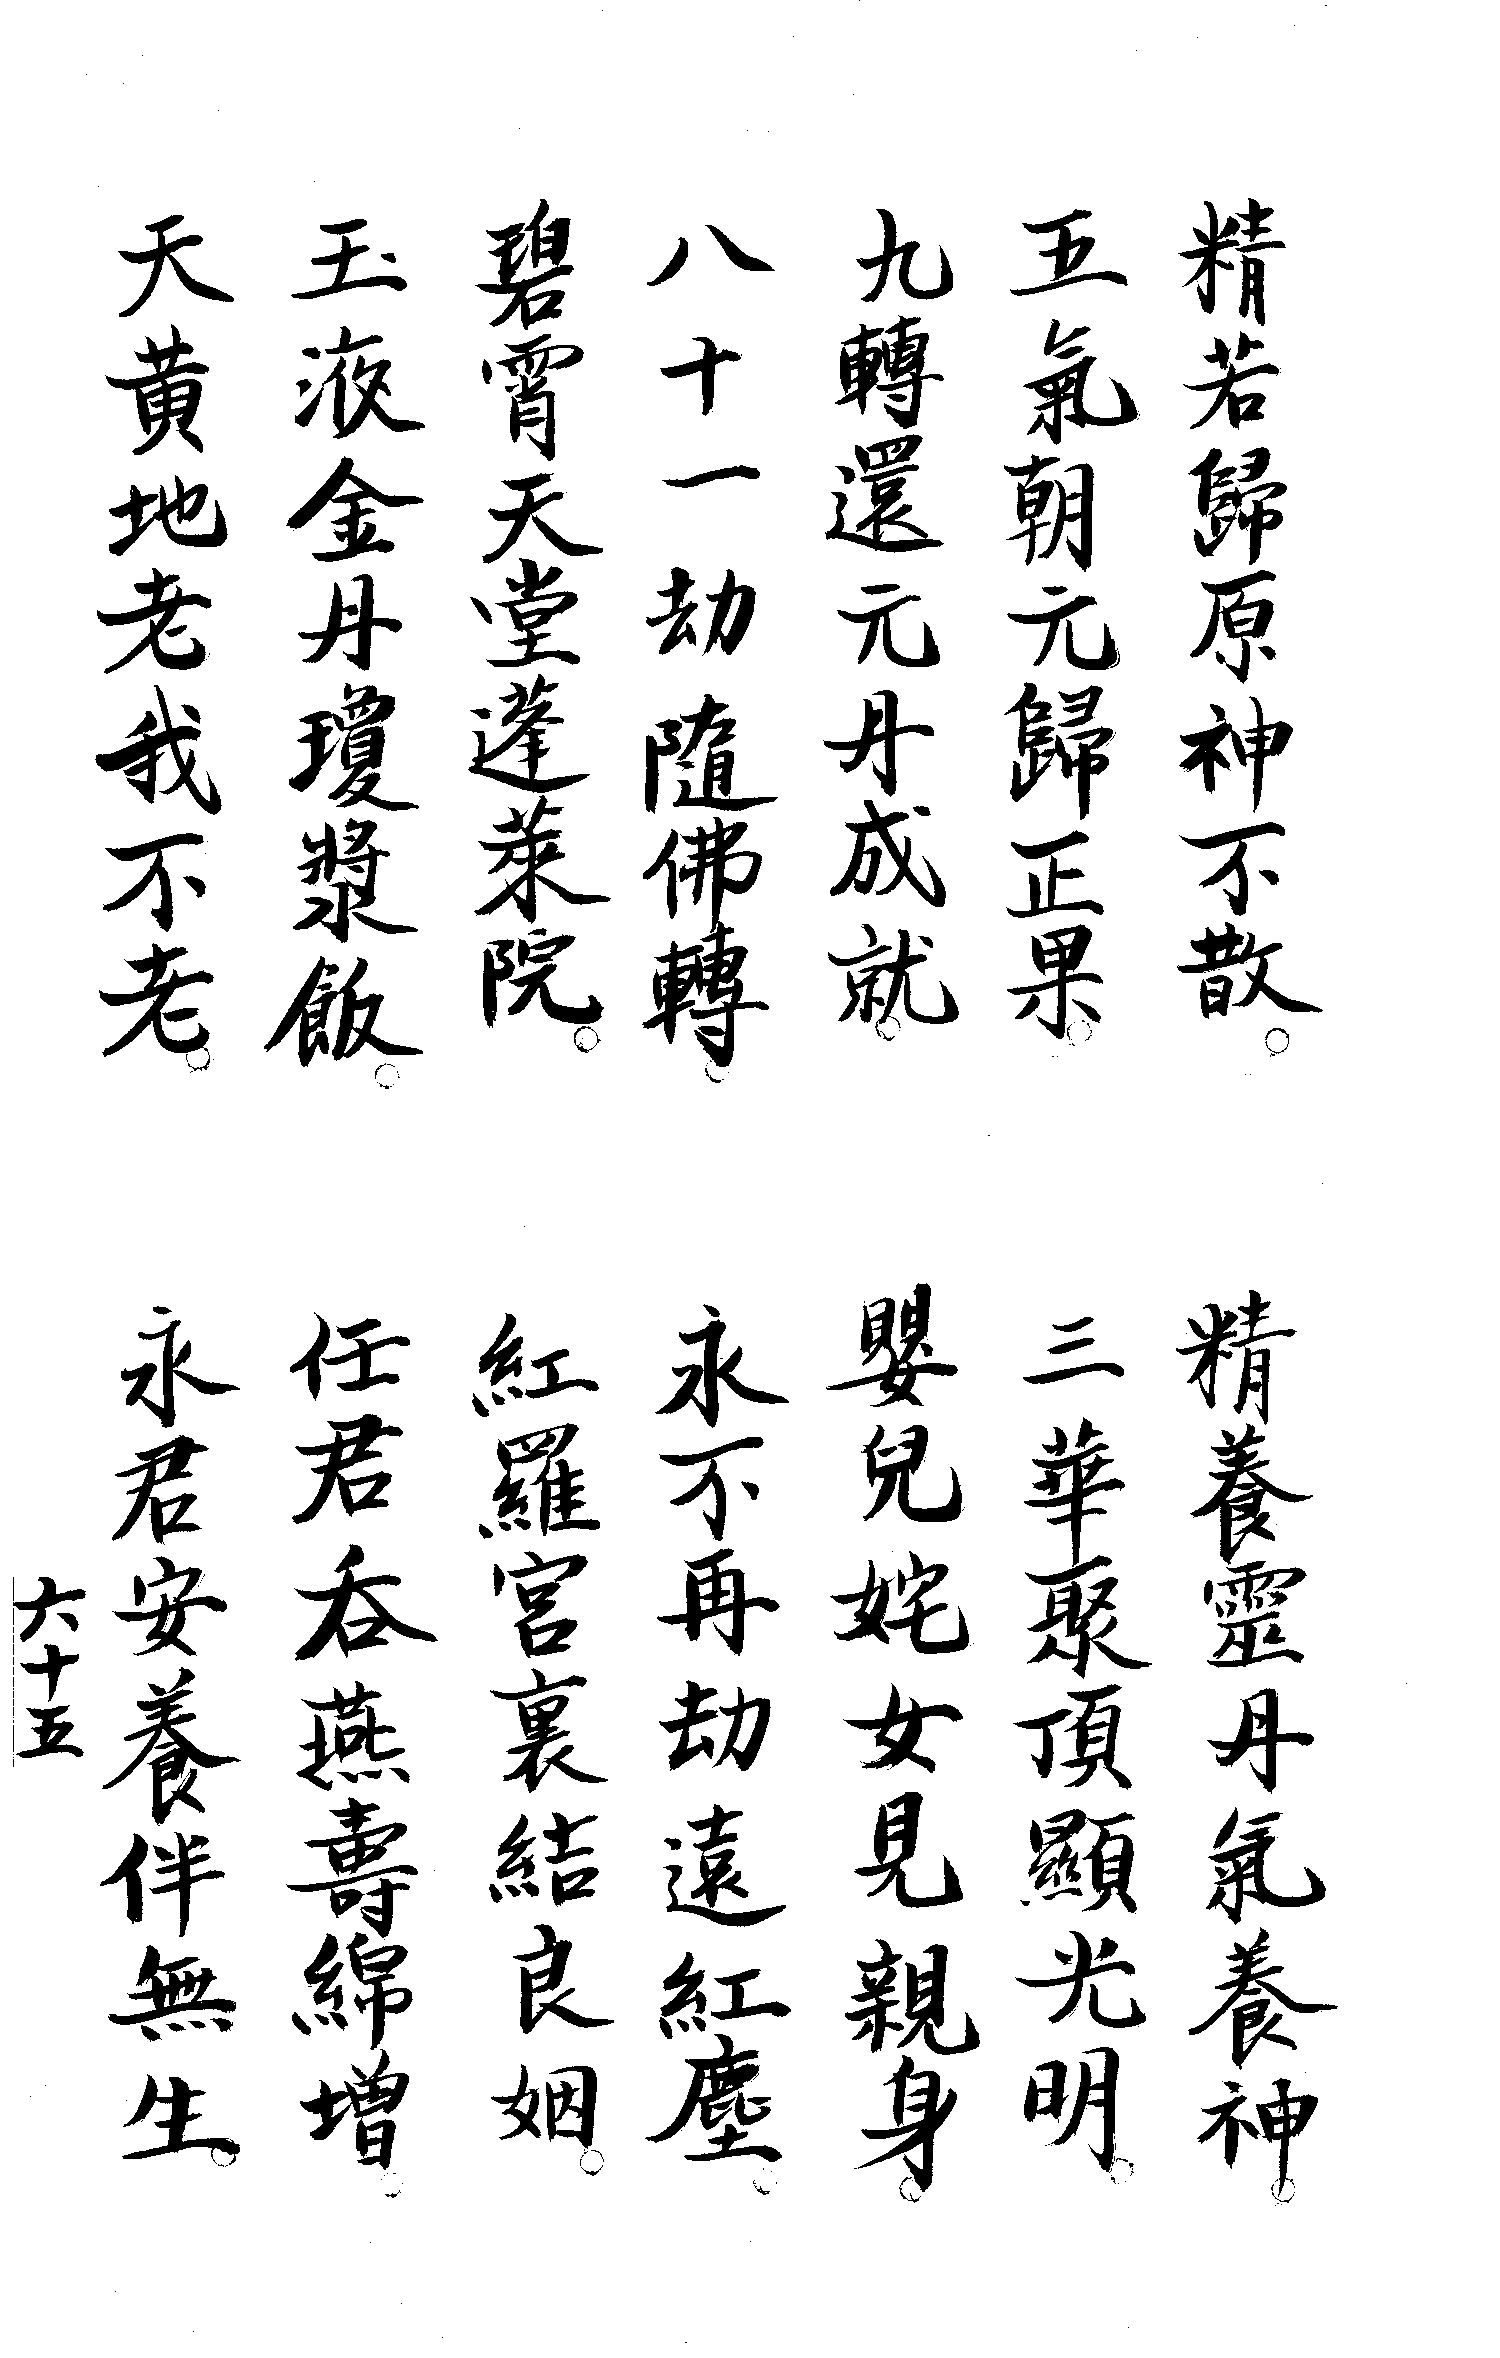 精若歸原神不散。
精養靈丹氣養神。
五氣朝元歸正果。
三華聚頂顯光明。
九轉還元丹成就。
嬰兒姹女見親身。
八十一劫隨佛轉。
永不再劫遠紅塵。
碧霄天堂蓬萊院。
紅羅宮裏結良姻。
玉液金丹瓊漿飯。
任君吞燕壽綿增。
天黃地老我不老。
永君安養伴無生。
六十五